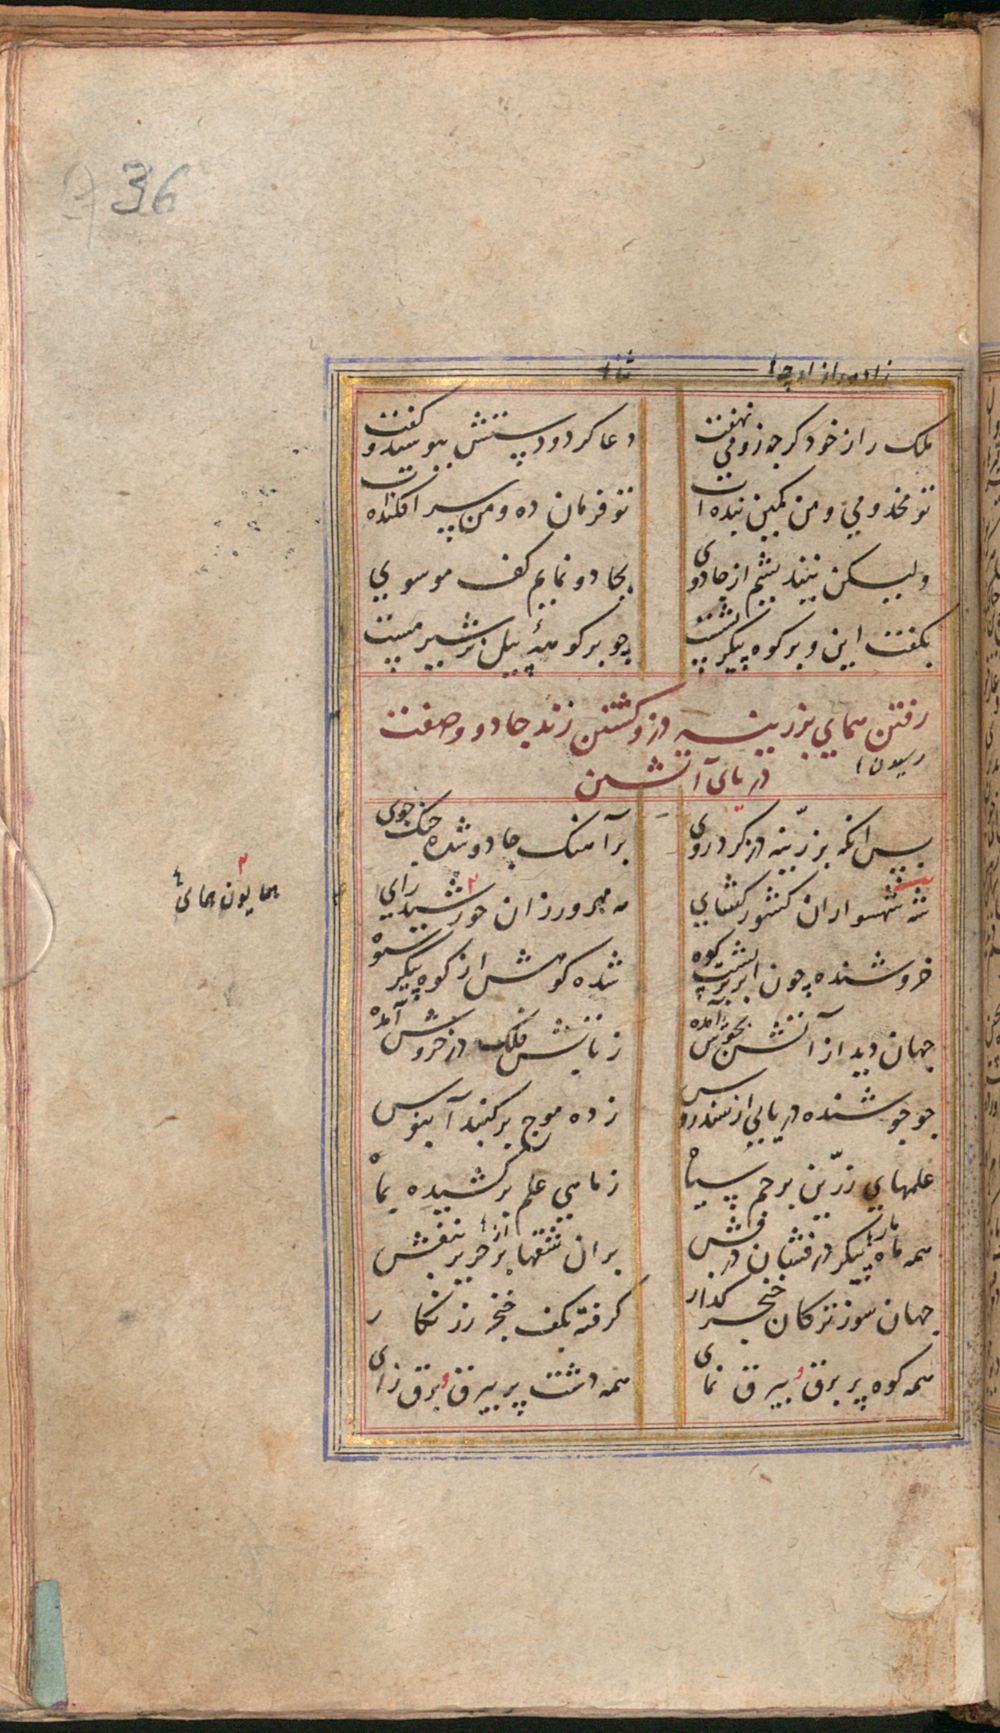 36
ملک راز خود کرچه زو می نهفت
دعا کرد و دستش ببوسید و کفت
تو مخدومی و من کمین بنده ات
تو فرمان ده و من سر افکنده ات
ولیکن نیندیشم از جادوی
بجادو نمایم کف موسوی
بکفت این و بر کوه پیکر نشست
چو بر کوههٔ پیل بر شیر مست
رفتن همای بزرینه دز و کشتن زند جادو و صفت
دریای آتشین
پس انکه بزرّینه دز کرد روی
برآهنک جادو شده جنک جوی
شه شهسواران کشور کشای
مه مهرورزان خورشید رای
همایون همای
خروشنده چون ابر بر پشت کوه
شده کوهش از کوه پیکر ستوه
جهان دید از آتش بجوش آمده
ز تابش فلک در خروش آمده
چو جوشنده دریایی از سندروس
زده موج بر کنبد آبنوس
علمهای زرّین پرچم سیاه
ز ماهی علم برکشیده بماه
همه ماه پیکر درفشان درفش
بران شقهاء از حریر بنفش
جهان سوز ترکان خنجر کذار
کرفته بکف خنجر زرنکار
همه کوه پر برق و بیرق نمای
همه دشت پر بیرق و برق زای